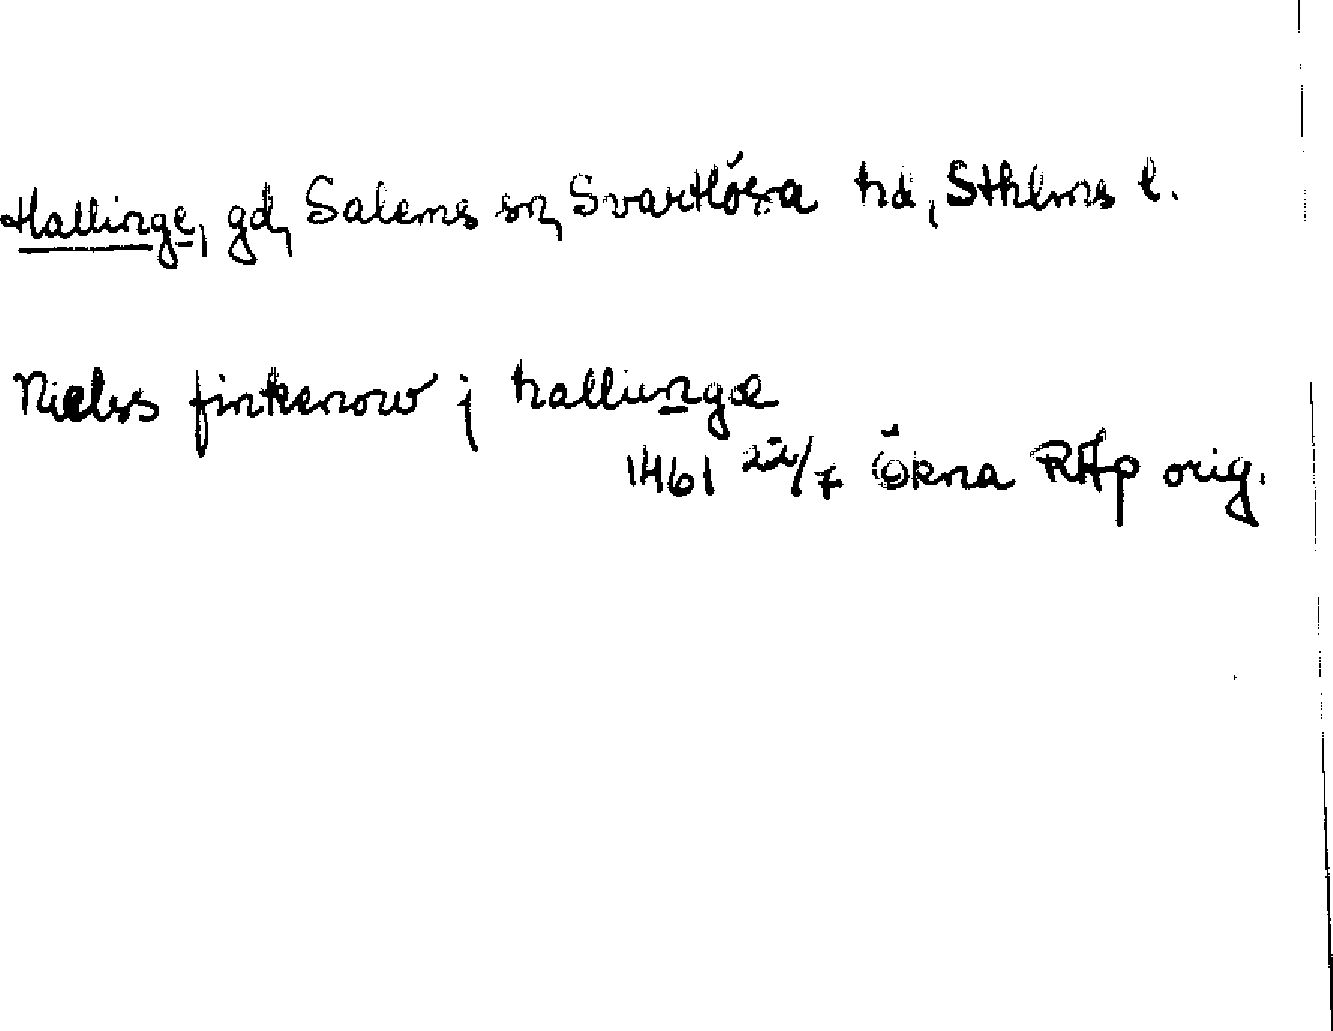 Hallinge, gd, Salems sn, Svartlösa hd, Sthlms l.
Nielss finkenow j hallingæ
1461 22/7 Ökna RAp orig.